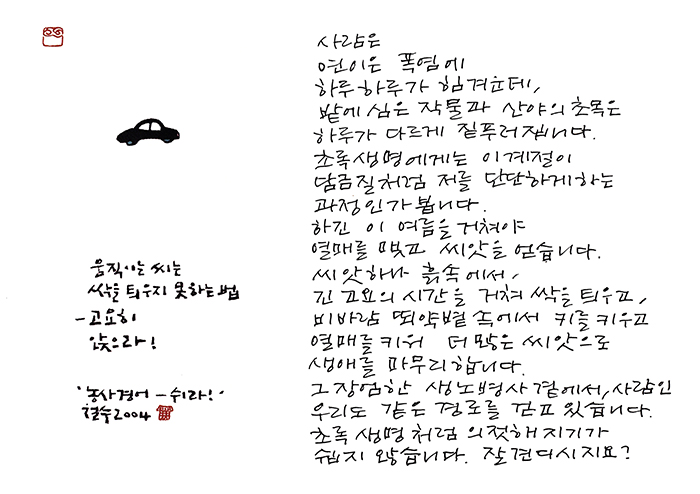 움직이는 씨는
싹을 틔우지 못하는 법
-고요히
앉으라!
'농사경어 - 쉬라!'
철수2004
사람은
연이은 폭염에
하루하루가 힘겨운데,
밭에 심은 작물과 산야의 초목은
하루가 다르게 짙푸러집니다.
초록생명에게는 이계절이
담금질처럼 저를 단단하게하는
과정인가 봅니다.
하긴 이 여름을 거쳐야
열매를 맺고 씨앗을 얻습니다.
씨앗하나 흙속에서,
긴 고요의 시간을 거쳐 싹을 틔우고,
비바람 뙤약볕 속에서 키를 키우고
열매를 키워 더 많은 씨앗으로
생애를 마무리합니다.
그장엄한 생노병사 곁에서, 사람인
우리도 같은 경로를 걷고 있습니다.
초록 생명처럼 의젓해지기가
쉽지 않습니다. 잘견디시지요?